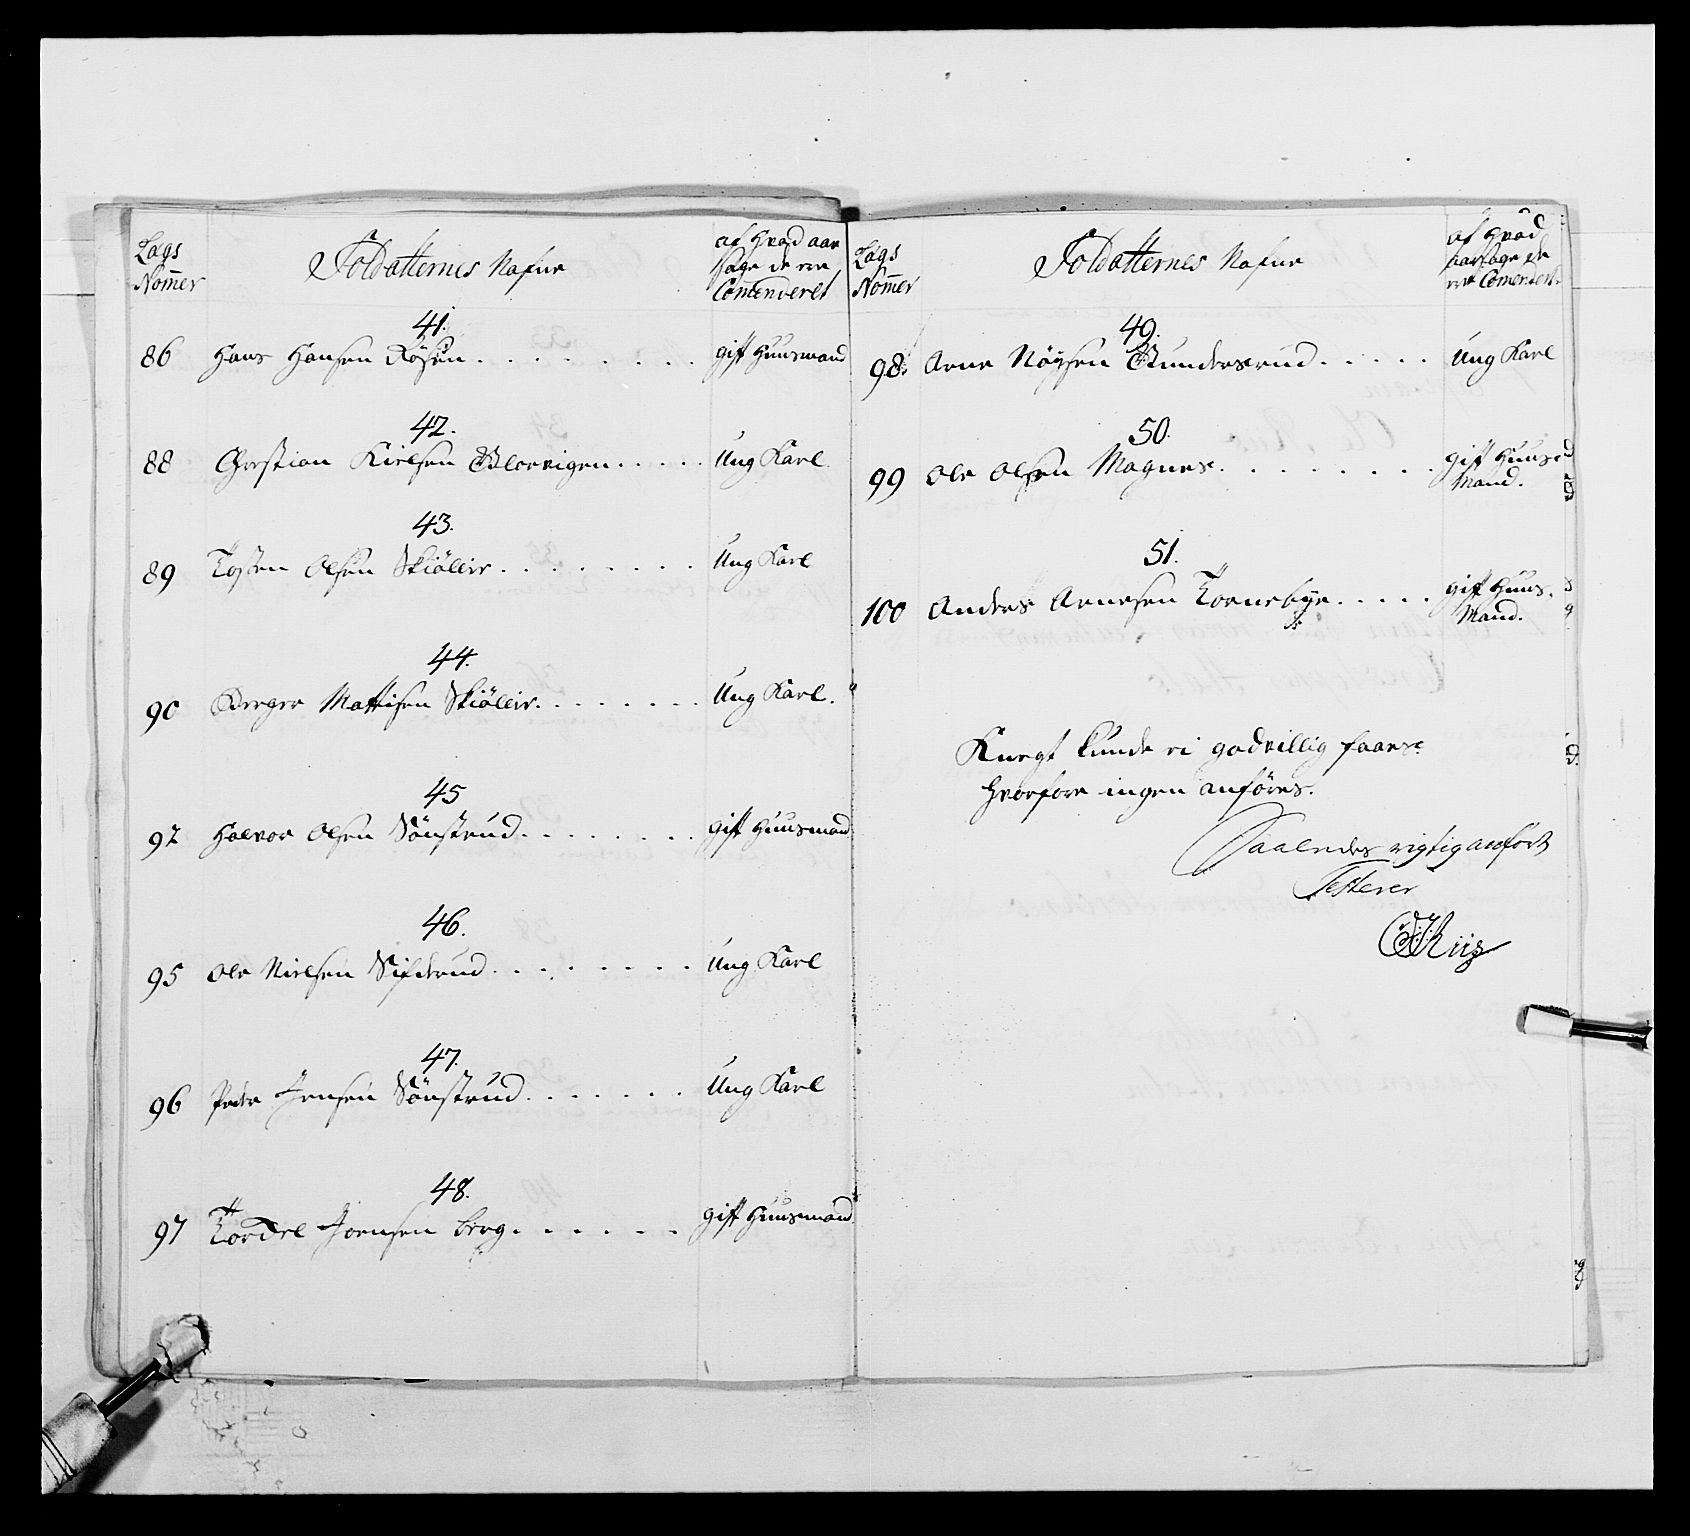 Lags
Nom̄er
Soldatternes Nafne
af hvad aar
sage de ere
Com̄enderet
41.
86 Hans Hansen Röysen . . . . . . . . gift Huusmand
42.
88 Chrestian Kielsen . . . . . Ung Karl.
43.
89 Tosten Olsen Skiöllir . . . . . . . . Ung Karl
44.
90 Berger Mattisen Skiöllir . . . . . . . Ung Karl.
45
92 Halvor Olsen Sönsterud . . . . . . . gift Huusmand
46.
95 Ole Nielsen Sifderud . . . . . . . . Ung Karl
47.
96 Peder Jensen Sönsterud . . . . . . . Ung Karl
48.
97 Tordel Joensen berg . . . . . . gift Huusmand.
Lags
Nom̄er
Soldatternes Nafne
af hvad
aarsage de
ere Comendert.
49.
98. Arne Nöysen Gundersrud . . . . . Ung Karl
50.
99 Ole Olsen Magnes . . . . . . . . gift Huus-
Mand.
51.
100 Anders Arnesen Tornebye . . . . . gift Huus-
Mand.
Knegt kunde ei godvillig faaes
hvorfore ingen anföres.
Saaledes rigtig anfört
Testerer
Riis